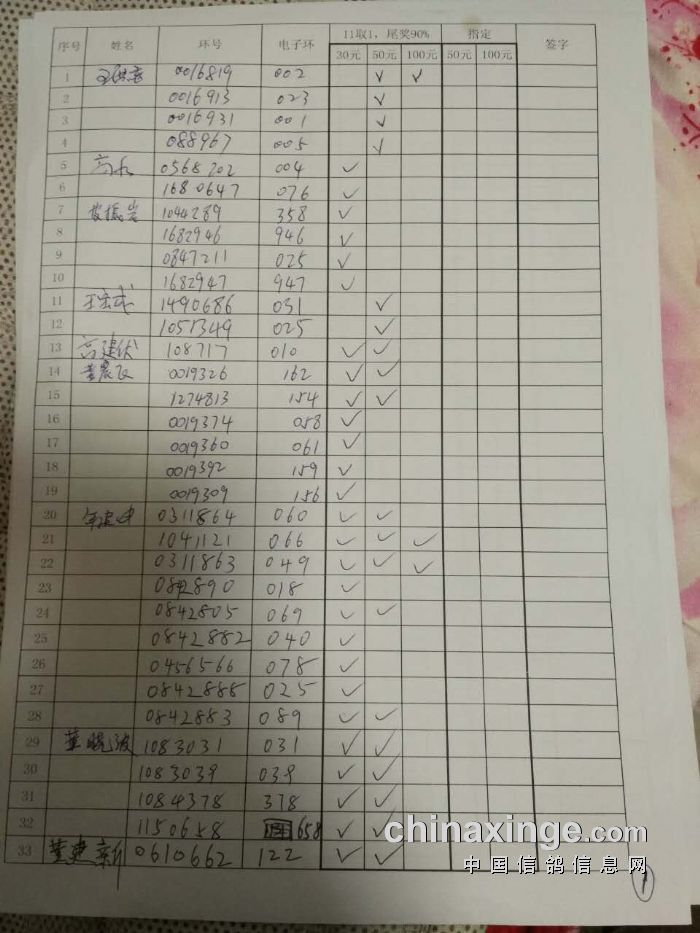 序号 姓名 环号 电子环 11取1，尾奖90% 指定 签字
30元 50元 100元 50元 100元
1 0016819 002 ✓ ✓
2 0016913 023 ✓
3 0016931 001 ✓
4 088967 005 ✓
5 0568202 004 ✓
6 1680647 076 ✓
7 1044289 358 ✓
8 1682946 946 ✓
9 0847211 025 ✓
10 1682947 947 ✓
11 1490686 031 ✓
12 1051349 025 ✓
13 高建伏 108717 010 ✓ ✓
14 0019326 162 ✓ ✓
15 1274813 154 ✓ ✓
16 0019374 058 ✓
17 0019360 061 ✓
18 0019392 159 ✓
19 0019309 156 ✓
20 0311864 060 ✓ ✓
21 1041121 066 ✓ ✓ ✓
22 0311863 049 ✓ ✓ ✓
23 0842890 018 ✓
24 0842805 069 ✓ ✓
25 0842882 040 ✓
26 0456566 078 ✓
27 0842888 025 ✓
28 0842883 089 ✓ ✓
29 董晓波 1083031 031 ✓ ✓
30 1083039 039 ✓ ✓
31 1084378 378 ✓ ✓
32 1150658 658 ✓ ✓
33 董建新 0610662 122 ✓ ✓
chinaxinge.com
中国信鸽信息网
1